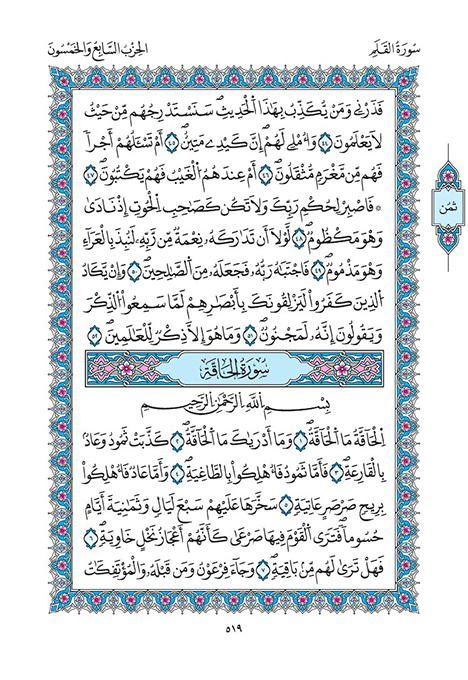 سُورَةُ القَلَمِ
الحِزْبُ السَّابِعُ وَالخَمْسُونَ
فَذَرْنِے وَمَنْ يُّكَذِّبُ بِهَٰذَا اَلْحَدِيثِۖ سَنَسْتَدْرِجُهُم مِّنْ حَيْثُ
لَا يَعْلَمُونَۖ ٤٤ وَأُمْلِے لَهُمُۥٓ إِنَّ كَيْدِے مَتِينٌۖ ٤٥ أَمْ تَسْـَٔلُهُمُۥٓ أَجْراٗ
فَهُم مِّن مَّغْرَمٖ مُّثْقَلُونَۖ ٤٦ أَمْ عِندَهُمُ اُلْغَيْبُ فَهُمْ يَكْتُبُونَۖ ٤٧
۞ فَاصْبِرْ لِحُكْمِ رَبِّكَ وَلَا تَكُن كَصَاحِبِ اِلْحُوتِ إِذْ نَادَىٰ
وَهُوَ مَكْظُومٞۖ ٤٨ لَّوْلَآ أَن تَدَٰرَكَهُۥ نِعْمَةٞ مِّن رَّبِّهِۦ لَنُبِذَ بِالْعَرَآءِ
وَهُوَ مَذْمُومٞۖ ٤٩ فَاجْتَبَٰهُ رَبُّهُۥ فَجَعَلَهُۥ مِنَ اَلصَّٰلِحِينَۖ ٥٠ وَإِنْ يَّكَادُ
اُلذِينَ كَفَرُواْ لَيَزْلِقُونَكَ بِأَبْصَٰرِهِمْ لَمَّا سَمِعُواْ اُلذِّكْرَ
وَيَقُولُونَ إِنَّهُۥ لَمَجْنُونٞۖ ٥١ وَمَا هُوَ إِلَّا ذِكْرٞ لِّلْعَٰلَمِينَۖ ٥٢
سُورَةُ الحَاقَّةِ
بِسْمِ اِللَّهِ اِلرَّحْمَٰنِ اِلرَّحِيمِ
اِلْحَآقَّةُ مَا اَلْحَآقَّةُۖ ١ وَمَآ أَدْر۪يٰكَ مَا اَلْحَآقَّةُۖ ٢ كَذَّبَتْ ثَمُودُ وَعَادُۢ
بِالْقَارِعَةِۖ ٣ فَأَمَّا ثَمُودُ فَأُهْلِكُواْ بِالطَّاغِيَةِۖ ٤ وَأَمَّا عَادٞ فَأُهْلِكُواْ
بِرِيحٖ صَرْصَرٍ عَاتِيَةٖۖ ٥ سَخَّرَهَا عَلَيْهِمْ سَبْعَ لَيَالٖ وَثَمَٰنِيَةَ أَيَّامٍ
حُسُوماٗۖ فَتَرَى اَلْقَوْمَ فِيهَا صَرْعَىٰ كَأَنَّهُمُۥٓ أَعْجَازُ نَخْلٍ خَاوِيَةٖۖ ٦
فَهَلْ تَر۪ىٰ لَهُم مِّنۢ بَاقِيَةٖۖ ٧ وَجَآءَ فِرْعَوْنُ وَمَن قَبْلَهُۥ وَالْمُوتَفِكَٰتُ
ثُمُن
٥١٩